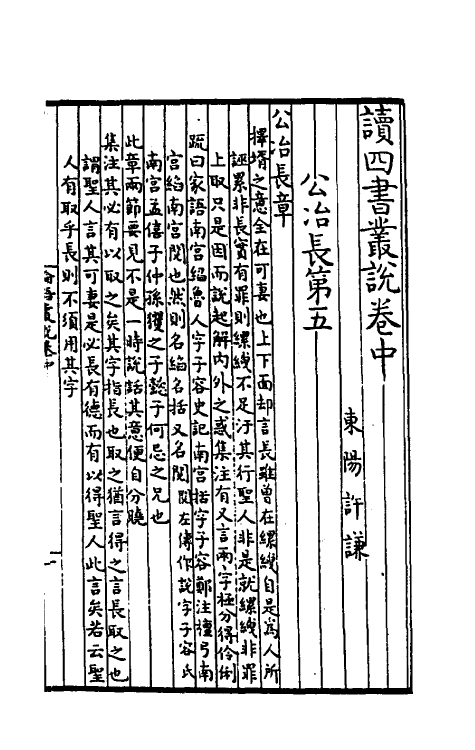 讀四書叢說卷中
東陽許謙
公冶長第五
公冶長章
擇壻之意全在可妻也上下面却言長雖曾在縲絏自是為人所
誣累非長實有罪則縲絏不足汙其行聖人非是就縲絏非罪
上取只是因而說起解內外之惑集注有又言兩字極分得伶俐
疏曰家語南宮縚魯人字子容史記南宮括字子容鄭注檀弓南
宮縚南宮閱也然則名縚名括又名閱閱左傳作說字子容氏
南宮孟僖子仲孫貜之子懿子何忌之兄也
此章兩節要見不是一時說話其意便自分曉
集注其必有以取之矣其字指長也取之猶言得之言長取之也
謂聖人言其可妻是必長有德而有以得聖人此言矣若云聖
人有取乎長則不須用其字
論語叢說卷中
一